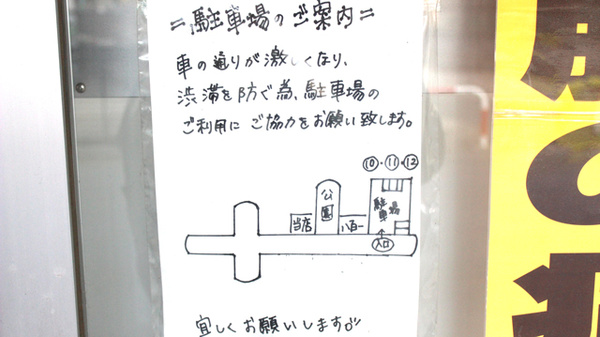 =駐車場のご案内=
車の通りが激しくなり、
渋滞を防ぐ為、駐車場の
ご利用にご協力をお願い致します。
⑩・⑪・⑫
公園
駐車場
当店
八百一
入口
宜しくお願いします。
の